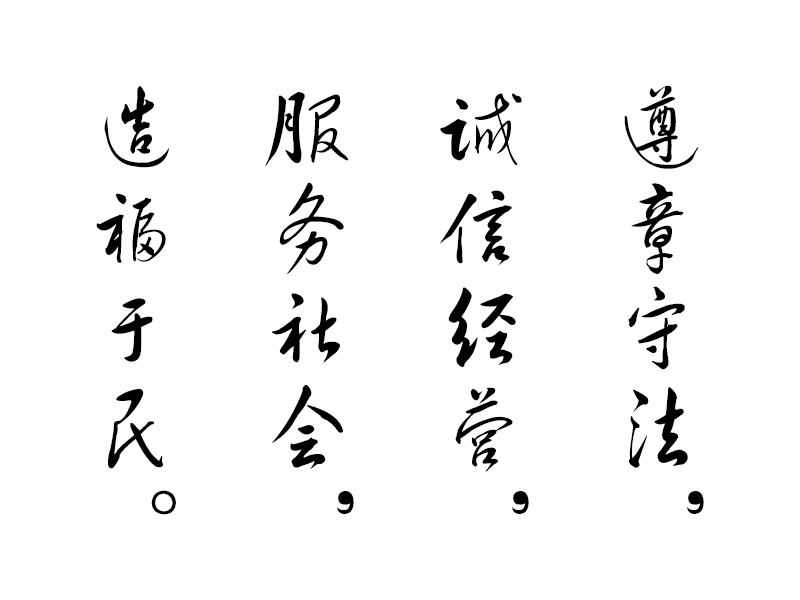 遵章守法，
诚信经营，
服务社会，
造福于民。